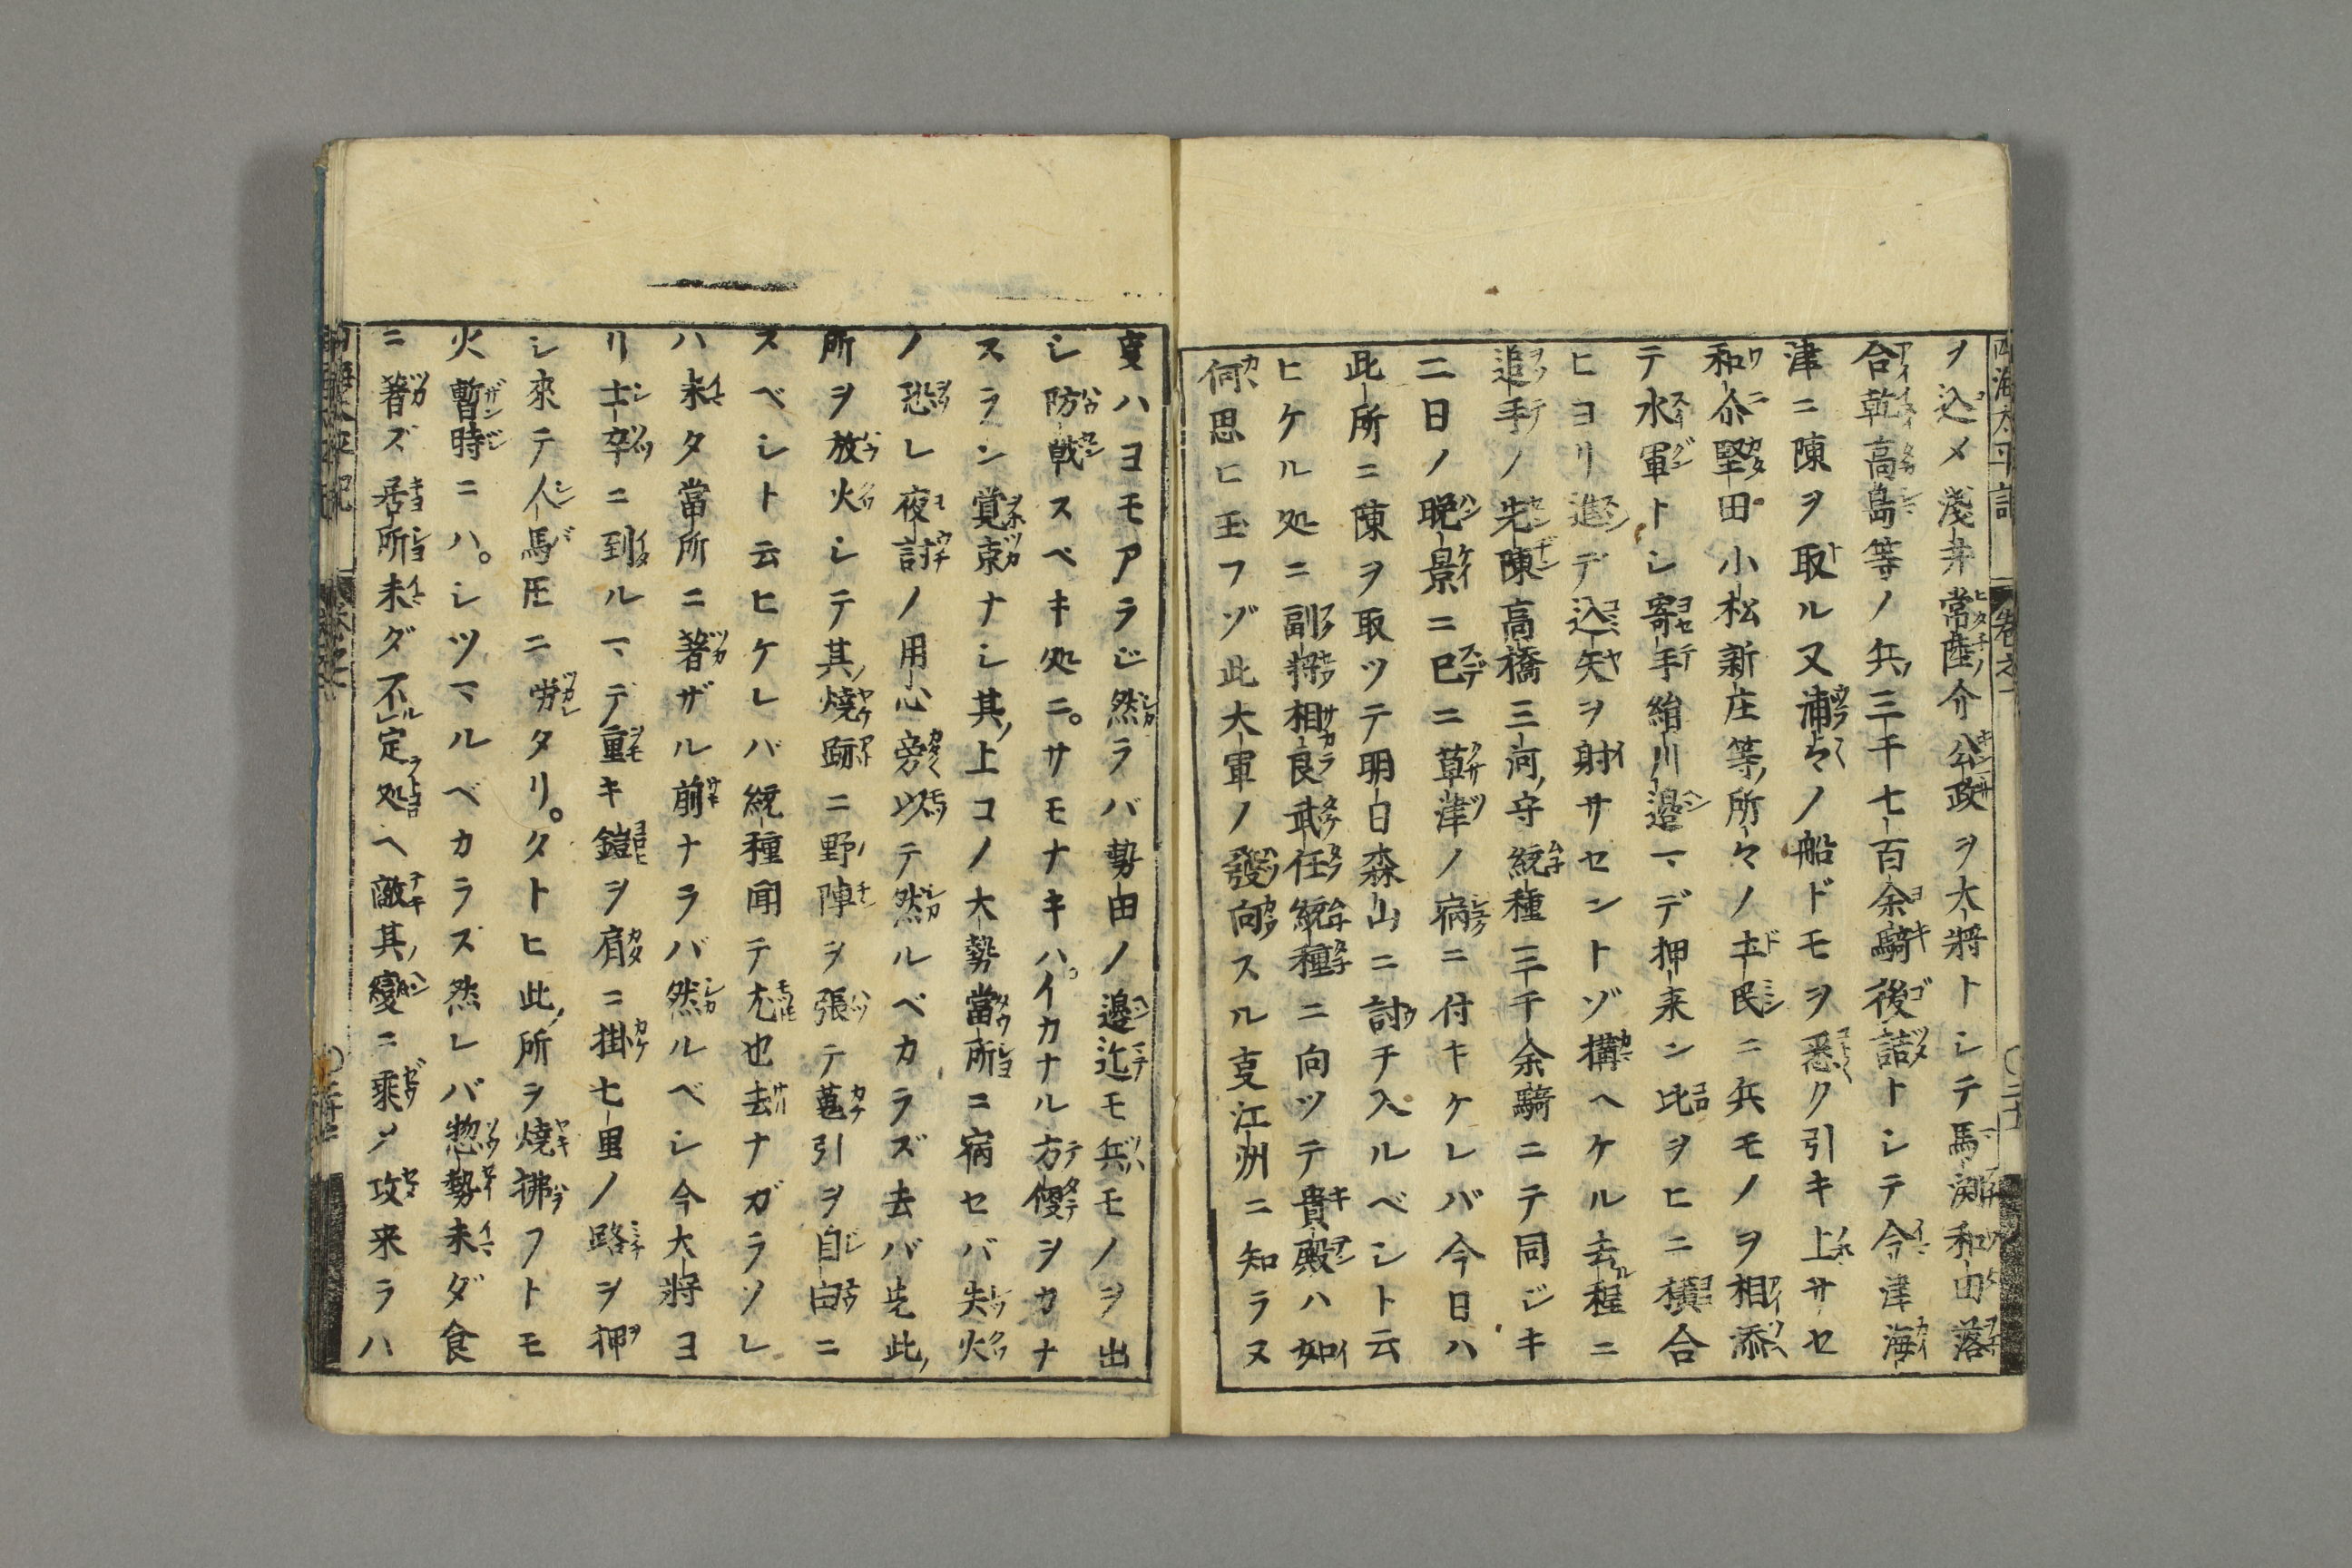 ヲ込メ淺井常陸介公政ヲ大将トシテ馬渕和田落
合乾高島等ノ兵三千七百余騎後詰トシテ今津海
津ニ陳ヲ取ル又浦々ノ船ドモヲ悉ク引キ上サセ
和介堅田小松新庄等所々ノ土民ニ兵モノヲ相添
テ水軍トシ寄手絹川邉マデ押来ン比ヲヒニ横合
ヒヨリ進デ込矢ヲ射サセントゾ構ヘケル去程ニ
追手ノ先陳高橋三河守統種三千余騎ニテ同ジキ
二日ノ晩景ニ已ニ草津ノ病ニ付キケレバ今日ハ
此所ニ陳ヲ取ツテ明日森山ニ討チ入ルベシト云
ヒケル処ニ副将相良武任統種ニ向ツテ貴殿ハ如
何思ヒ玉フゾ此大軍ノ發向スル㕝江洲ニ知ラヌ
㕝ハヨモアラジ然ラバ勢田ノ邉迄モ兵モノヲ出
シ防戦スベキ処ニ。サモナキハ。イカナル方便ヲカナ
スラン覚束ナシ其上コノ大勢當所ニ宿セバ失火
ノ恐レ夜討ノ用心旁以テ然ルベカラズ去バ先此
所ヲ放火シテ其燒跡ニ野陣ヲ張テ蒐引ヲ自由ニ
スベシト云ヒケレバ統種聞テ尤也去ナガラソレ
ハ未タ當所ニ著ザル前ナラバ然ルベシ今大将ヨ
リ士卒ニ到ルマデ重キ鎧ヲ肩ニ掛七里ノ路ヲ押
シ來テ人馬㕝ニ労タリ。タトヒ此所ヲ燒拂フトモ
火暫時ニハ。シツマルベカラズ然レバ惣勢未ダ食
ニ著ズ居所未ダ不定処ヘ敵其變ニ乘〆攻来ラハ